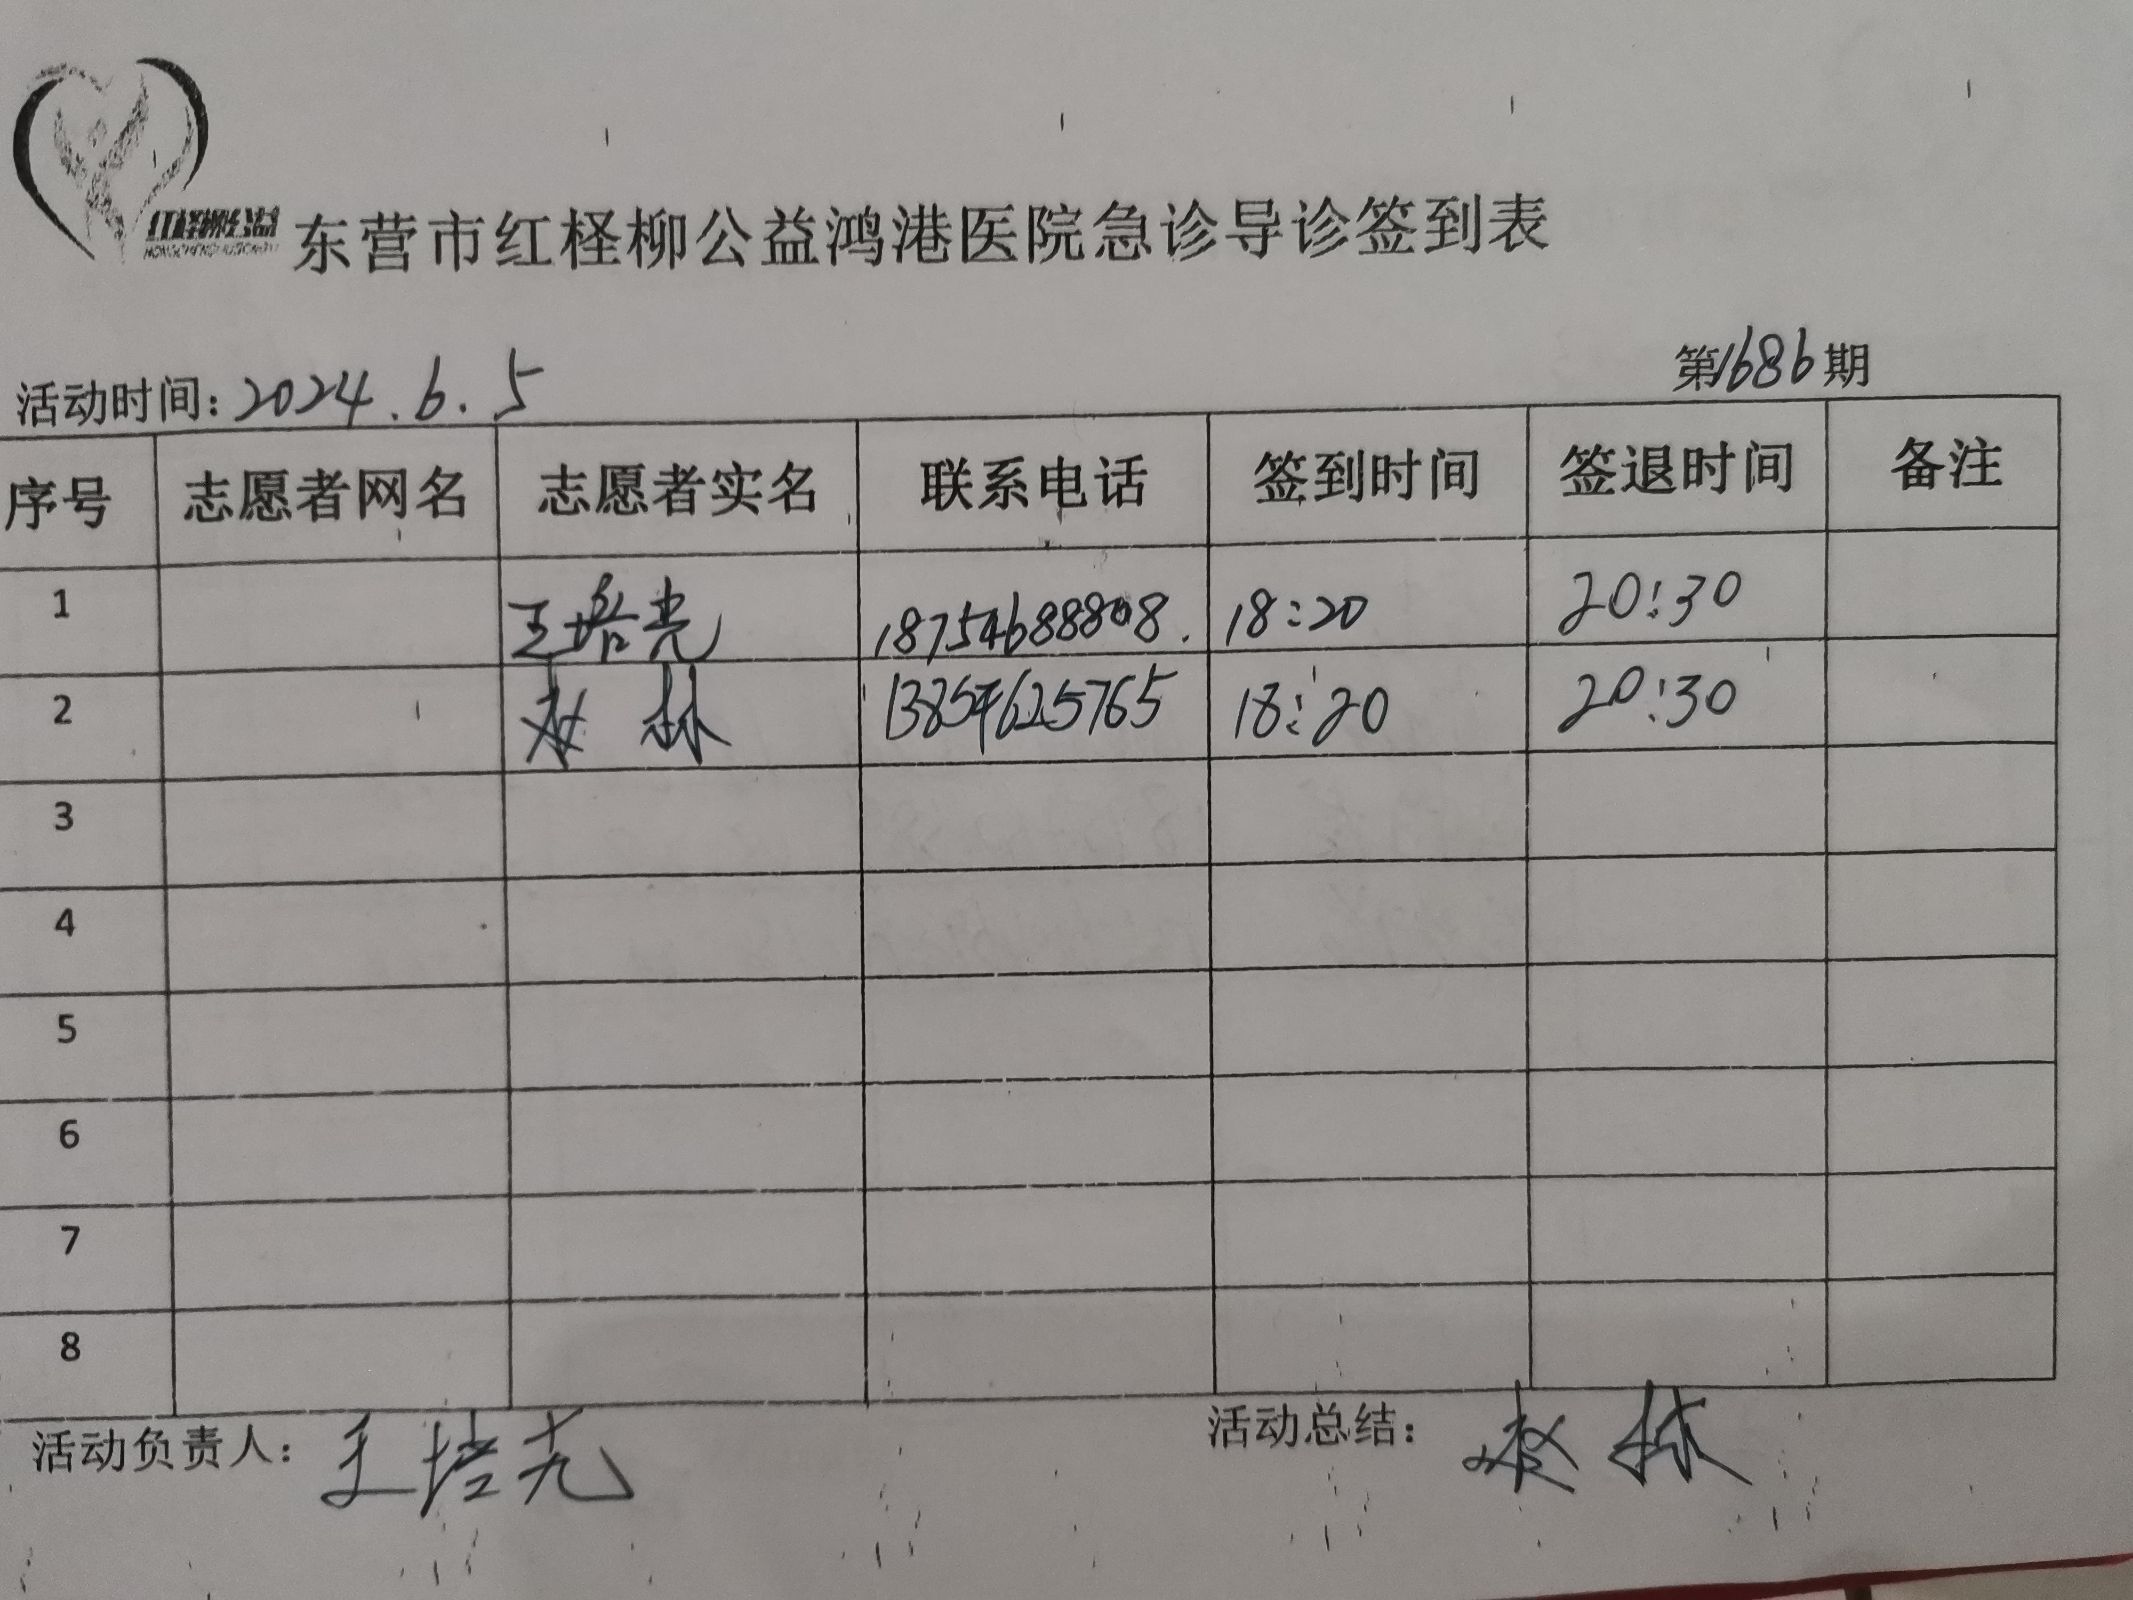 红柽柳公益
东营市红柽柳公益鸿港医院急诊导诊签到表
活动时间：2024.6.5 第1686期
序号 志愿者网名 志愿者实名 联系电话 签到时间 签退时间 备注
1 王培亮 18754688808. 18:20 20:30
2 林 13854625765 18:20 20:30
3
4
5
6
7
8
活动负责人： 王培亮 活动总结： 林